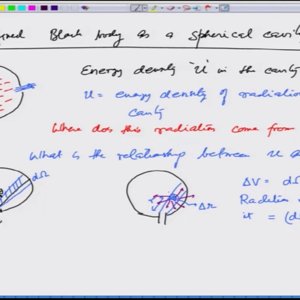 Black body as a spherical cavity
Energy density 'U' in the cavity
U = energy density of radiation
cavity
Where does this radiation come from
What is the relationship between U
dΩ
Δr
ΔV = dΩ